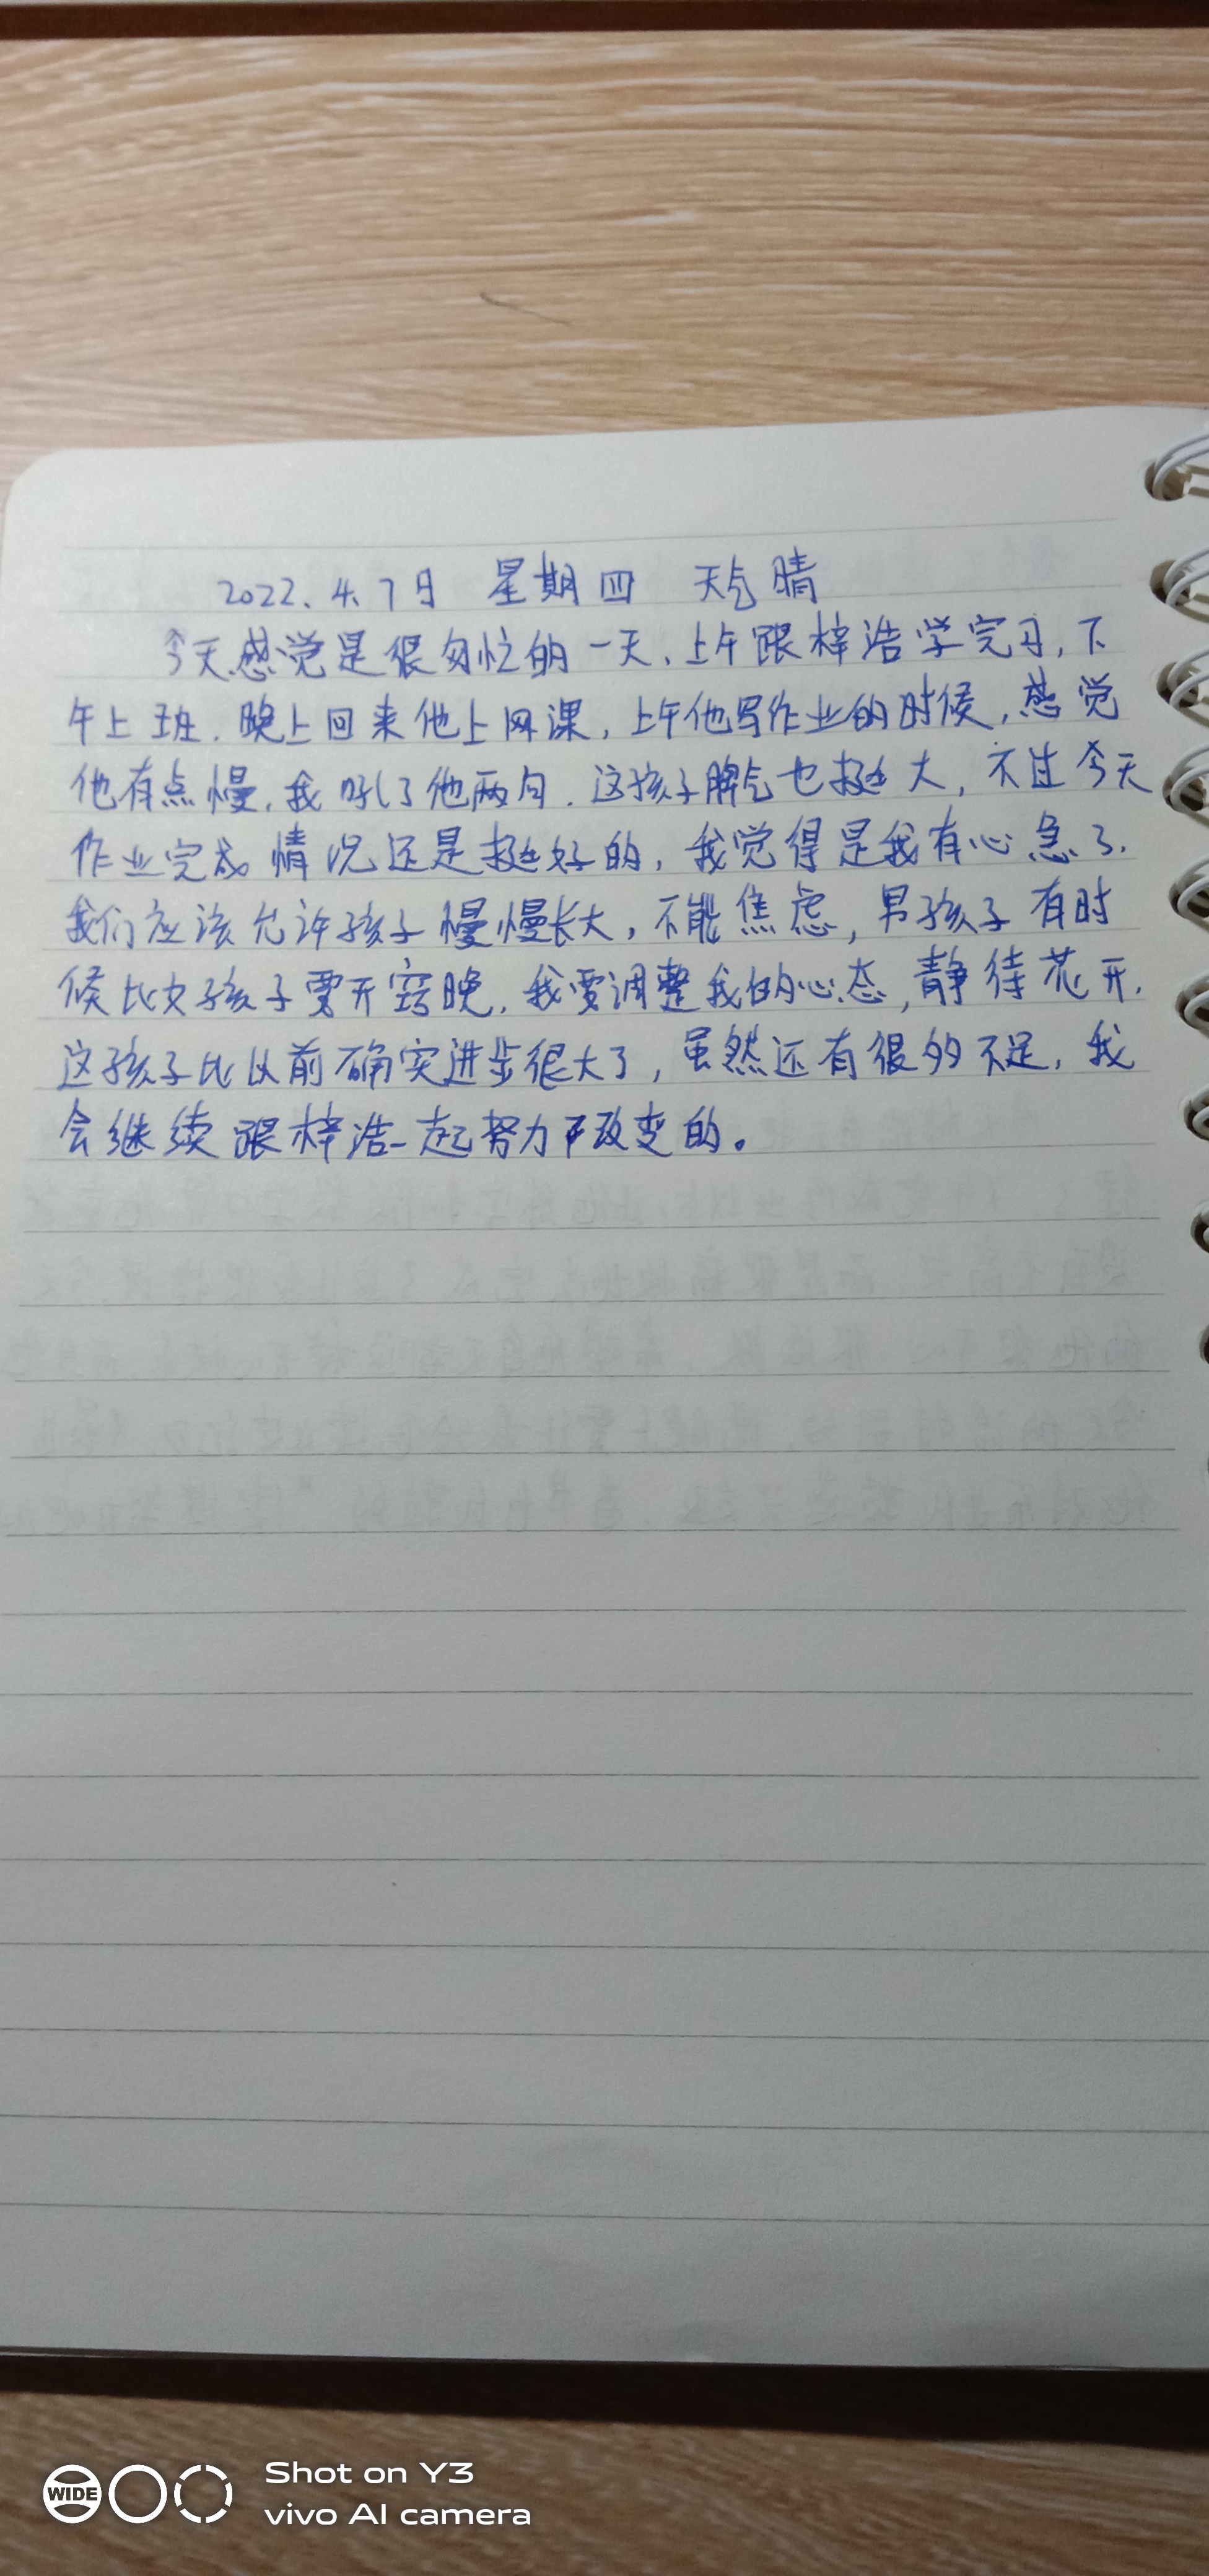 2022、4、7日 星期四 天气晴
今天感觉是很匆忙的一天、上午跟梓浩学完习,下
午上班.晚上回来他上网课,上午他写作业的时候,感觉
他有点慢,我吼了他两句.这孩子脾气也挺大,不过今天
作业完成情况还是挺好的,我觉得是我有心急了.
我们应该允许孩子慢慢长大,不能焦虑,男孩子有时
候比女孩子要开窍晚,我要调整我的心态,静待花开.
这孩子比以前确实进步很大了,虽然还有很多不足,我
会继续跟梓浩一起努力改变的。
WIDE
Shot on Y3
vivo AI camera